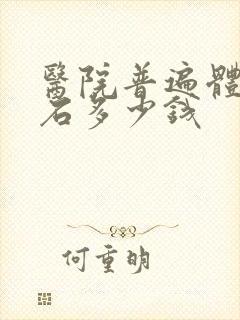 醫院普遍體
石多少錢
何重明